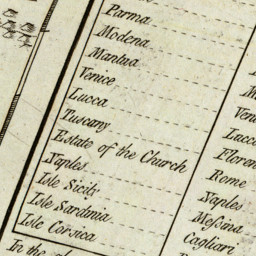 Parma
Modena
Mantua
Venice
Lucca
Tuscany
Estate of the Church
Naples
Isle Sicily
Isle Sardinia
Isle Corsica
In the
Rome
Naples
Messina
Cagliari